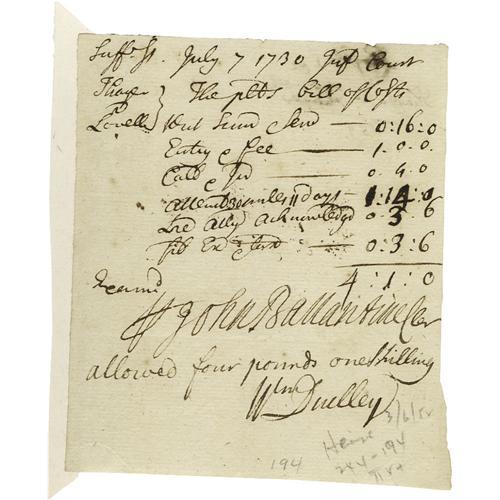 Suff. ss. July 7 1730 Inf Court
Thayer } The plts bill of Costs
Lovell } Writ Sum & Serv — 0:16:0
Entry & fee — 1.0.0
0.4.0
Attend 30 miles 11 days — 1:14:0
Acknowledgd 0.3.6
0:3:6
4:1:0
Examd
John Ballantine Cler
allowed four pounds one Shilling
Wm Dudley
194
3/6/52
244-194